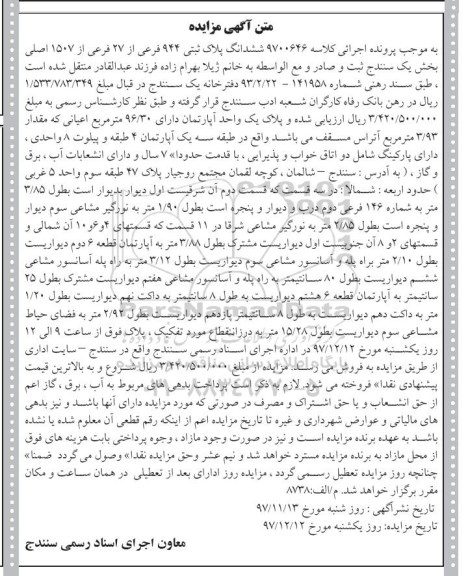 متن آگهی مزایده
به موجب پرونده اجرائی کلاسه ۹۷۰۰۶۴۶ ششدانگ پلاک ثبتی ۹۴۴ فرعی از ۲۷ فرعی از ۱۵۰۷ اصلی
بخش یک سنندج ثبت و صادر و مع الواسطه به خانم ژیلا بهرام زاده فرزند عبدالقادر منتقل شده است
، طبق سند رهنی شماره ۱۴۱۹۵۸ – ۹۳/۲/۲۲ دفترخانه یک سنندج در قبال مبلغ ۱/۵۳۳/۷۸۳/۳۴۹
ریال در رهن بانک رفاه کارگران شعبه ادب سنندج قرار گرفته و طبق نظر کارشناس رسمی به مبلغ
۳/۴۲۰/۵۰۰/۰۰۰ ریال ارزیابی شده و پلاک یک واحد آپارتمان دارای ۹۶/۳۰ مترمربع اعیانی که مقدار
۳/۹۳ مترمربع آتراس مسقف می باشد واقع در طبقه سه یک آپارتمان ۴ طبقه و پیلوت ۸ واحدی ،
دارای پارکینگ شامل دو اتاق خواب و پذیرایی ، با قدمت حدودا» ۷ سال و دارای انشعابات آب ، برق
و گاز ، ( به آدرس : سنندج – شالمان ، کوچه لقمان مجتمع روجیار پلاک ۴۷ طبقه سوم واحد ۵ غربی
) حدود اربعه : شمالاً : در سه قسمت که قسمت دوم آن شرقیست اول دیوار بدیوار است بطول ۳/۸۵
متر به شماره ۱۴۶ فرعی دوم درب و دیوار و پنجره است بطول ۱/۹۰ متر به نورگیر مشاعی سوم دیوار
و پنجره است بطول ۲/۸۵ متر به نورگیر مشاعی شرقا در ۱۱ قسمت که قسمتهای ۴و۶و۱۰ آن شمالی و
قسمتهای ۲و ۸ آن جنوبیست اول دیواریست مشترک بطول ۳/۸۸ متر به آپارتمان قطعه ۶ دوم دیواریست
بطول ۲/۱۰ متر براه پله و آسانسور مشاعی سوم دیواریست بطول ۳/۱۲ متر به راه پله آسانسور مشاعی
ششم دیواریست بطول ۸۰ سانتیمتر به راه پله و آسانسور مشاعی هفتم دیواریست مشترک بطول ۲۵
سانتیمتر به آپارتمان قطعه ۶ هشتم دیواریست به طول ۸ سانتیمتر به داکت نهم دیواریست بطول ۱/۲۰
متر به داکت دهم دیواریست به طول ۸ سانتیمتر یازدهم دیواریست بطول ۲/۹۲ متر به فضای حیاط
مشاعی سوم دیواریست بطول ۱۵/۲۸ متر به درزانقطاع مورد تفکیک ، پلاک فوق از ساعت ۹ الی ۱۲
روز یکشنبه مورخ ۹۷/۱۲/۱۲ در اداره اجرای اسناد رسمی سنندج واقع در سنندج – سایت اداری
از طریق مزایده به فروش می رسد. مزایده از مبلغ ۳/۴۲۰/۵۰۰/۰۰۰ ریال شروع و به بالاترین قیمت
پیشنهادی نقدا» فروخته می شود. لازم به ذکر است پرداخت بدهی های مربوط به آب ، برق ، گاز اعم
از حق انشعاب و یا حق اشتراک و مصرف در صورتی که مورد مزایده دارای آنها باشد و نیز بدهی
های مالیاتی و عوارض شهرداری و غیره تا تاریخ مزایده اعم از اینکه رقم قطعی آن معلوم شده یا نشده
باشد به عهده برنده مزایده است و نیز در صورت وجود مازاد ، وجوه پرداختی بابت هزینه های فوق
از محل مازاد به برنده مزایده مسترد خواهد شد و نیم عشر وحق مزایده نقدا» وصول می گردد ضمنا»
چنانچه روز مزایده تعطیل رسمی گردد ، مزایده روز اداری بعد از تعطیلی در همان ساعت و مکان
مقرر برگزار خواهد شد. م/الف:۸۷۳۸
تاریخ نشرآگهی : روز شنبه مورخ ۹۷/۱۱/۱۳
تاریخ مزایده: روز یکشنبه مورخ ۹۷/۱۲/۱۲
معاون اجرای اسناد رسمی سنندج